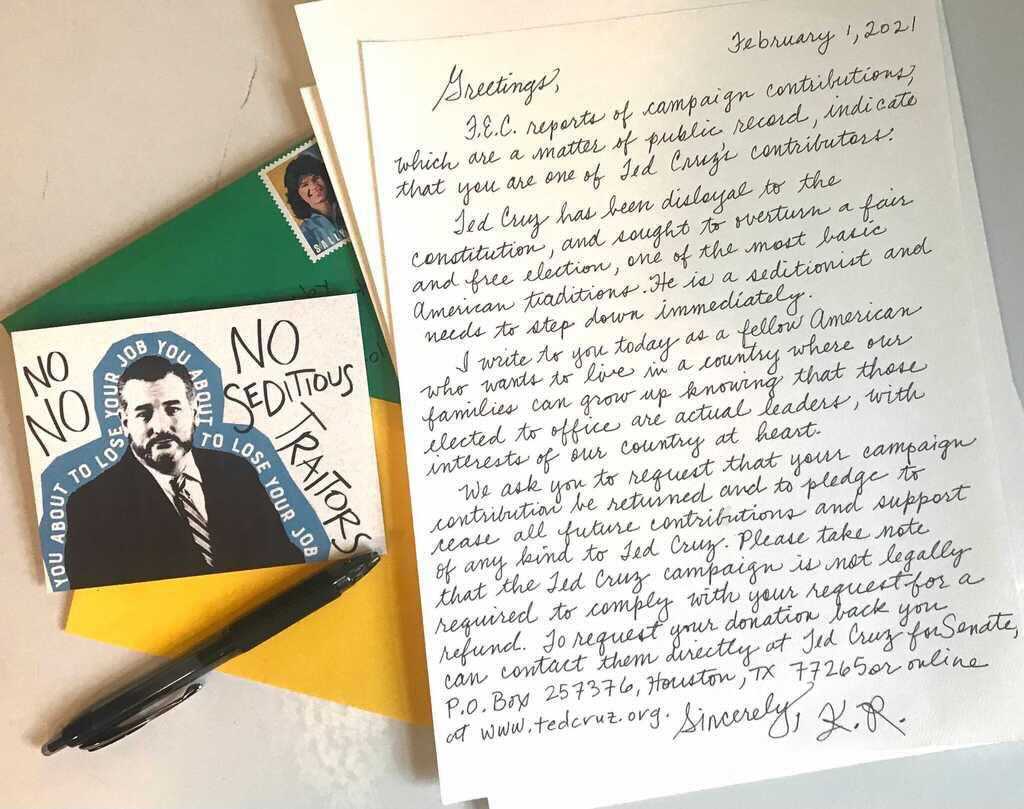 February 1, 2021
Greetings,
F.E.C. reports of campaign contributions,
which are a matter of public record, indicate
that you are one of Ted Cruz's contributors.
Ted Cruz has been disloyal to the
constitution, and sought to overturn a fair
and free election, one of the most basic
American traditions. He is a seditionist and
needs to step down immediately.
I write to you today as a fellow American
who wants to live in a country where our
families can grow up knowing that those
elected to office are actual leaders, with
interests of our country at heart.
We ask you to request that your campaign
contribution be returned and to pledge to
cease all future contributions and support
of any kind to Ted Cruz. Please take note
that the Ted Cruz campaign is not legally
required to comply with your request for a
refund. To request your donation back you
can contact them directly at Ted Cruz for Senate,
P.O. Box 257376, Houston, TX 77265 or online
at www.tedcruz.org. Sincerely, K.R.
SALLY
NO
NO
NO
SEDITIOUS
TRAITORS
YOU ABOUT TO LOSE YOUR JOB YOU ABOUT TO LOSE YOUR JOB